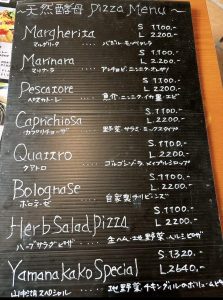 ～天然酵母 Pizza Menu～
Margherita S 1100.-
マルゲリータ .... バジル・モッツァレラ L 2200.-
Marinara S 1100.-
マリナーラ .... アンチョビ・ニンニク・オレガノ L 2200.-
Pescatore S 1100.-
ペスカトーレ .... 魚介・ニンニク・イカ・エビ L 2200.-
Caprichiosa S 1100.-
カプリチョーザ .... 野菜・サラミ・ミックス L 2200.-
Quattro S 1100.-
クアトロ .... ゴルゴンゾーラ・メイプルシロップ L 2200.-
Bolognase S 1100.-
ボロネーゼ .... 自家製 L 2200.-
Herb Salad Pizza S 1100.-
ハーブサラダピザ .... 生ハム・地野菜 L 2200.-
Yamanakako Special S 1320.-
L 2640.-
山中湖スペシャル .... 地野菜・チキングリル